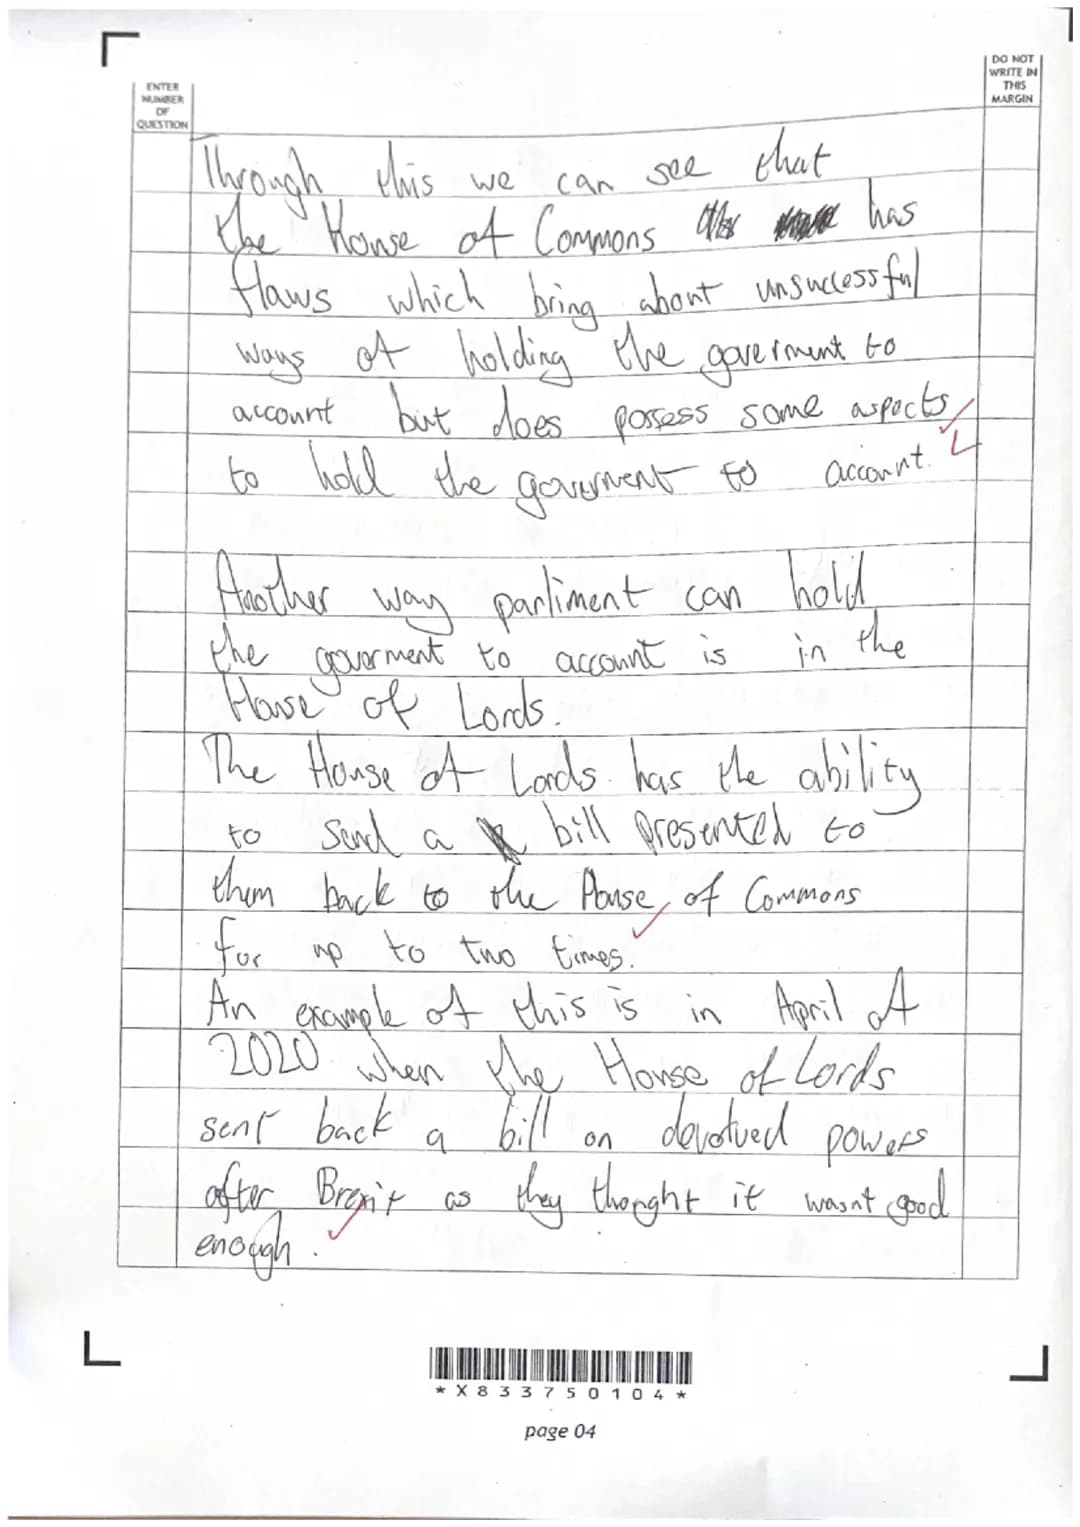 ENTER
NUMBER
OF
QUESTION
DO NOT
WRITE IN
THIS
MARGIN
Through this we can see that
the House of Commons has
flaws which bring about unsuccessful
ways of holding the goverment to
account but does possess some aspects
to hold the goverment to account.
Another way parliment can hold
the goverment to account is in the
House of Lords.
The House of Lords has the ability
to send a bill presented to
them back to the House of Commons
for up to two times.
An example of this is in April of
2020 when the House of Lords
sent back a bill on devolved powers
after Brexit as they thought it wasnt good
enough.
*X833750104*
page 04